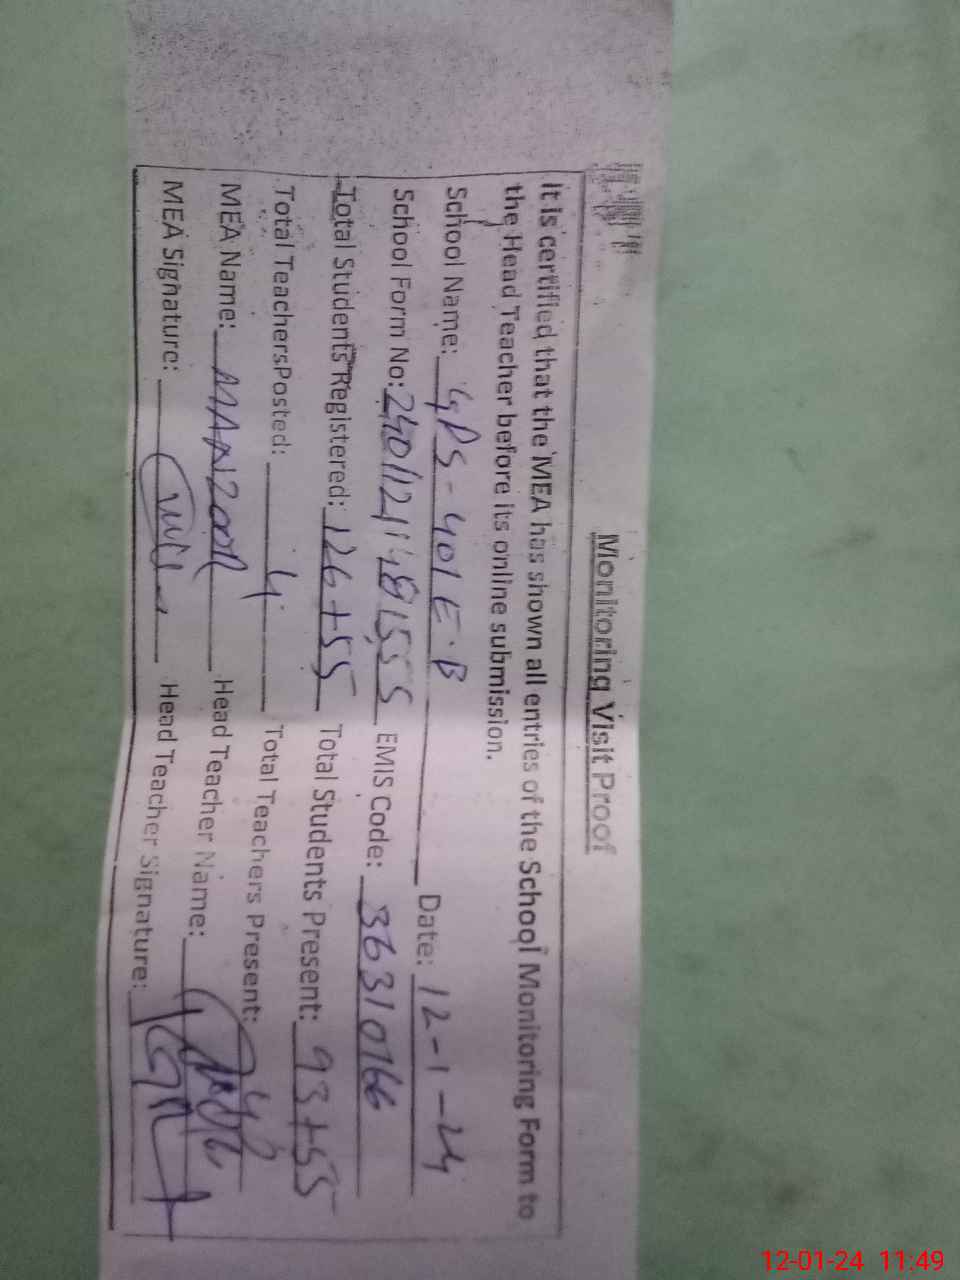 Monitoring Visit Proof
It is certified that the MEA has shown all entries of the School Monitoring Form to
the Head Teacher before its online submission.
School Name: GPS-401 E.B Date: 12-1-24
School Form No: 240112148155S EMIS Code: 36310766
Total Students Registered: 126+55 Total Students Present: 93+55
Total TeachersPosted: 4 Total Teachers Present: 4
MEA Name: MANZOOR Head Teacher Name:
MEA Signature: Head Teacher Signature:
12-01-24 11:49